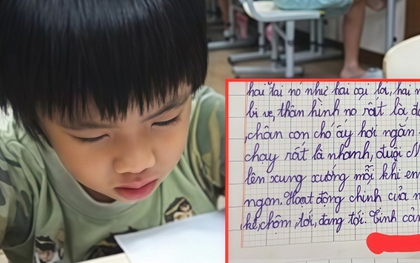 hai tai nó như hai cái lá, hai m
bi ve, thân hình nó rất là d
chân con chó ấy hơi ngắn
chạy rất là nhanh, đuôi
lên xung xướng mỗi khi em
ngon. Hoạt động chính của n
chồm, tới, đang tới. Tình cả